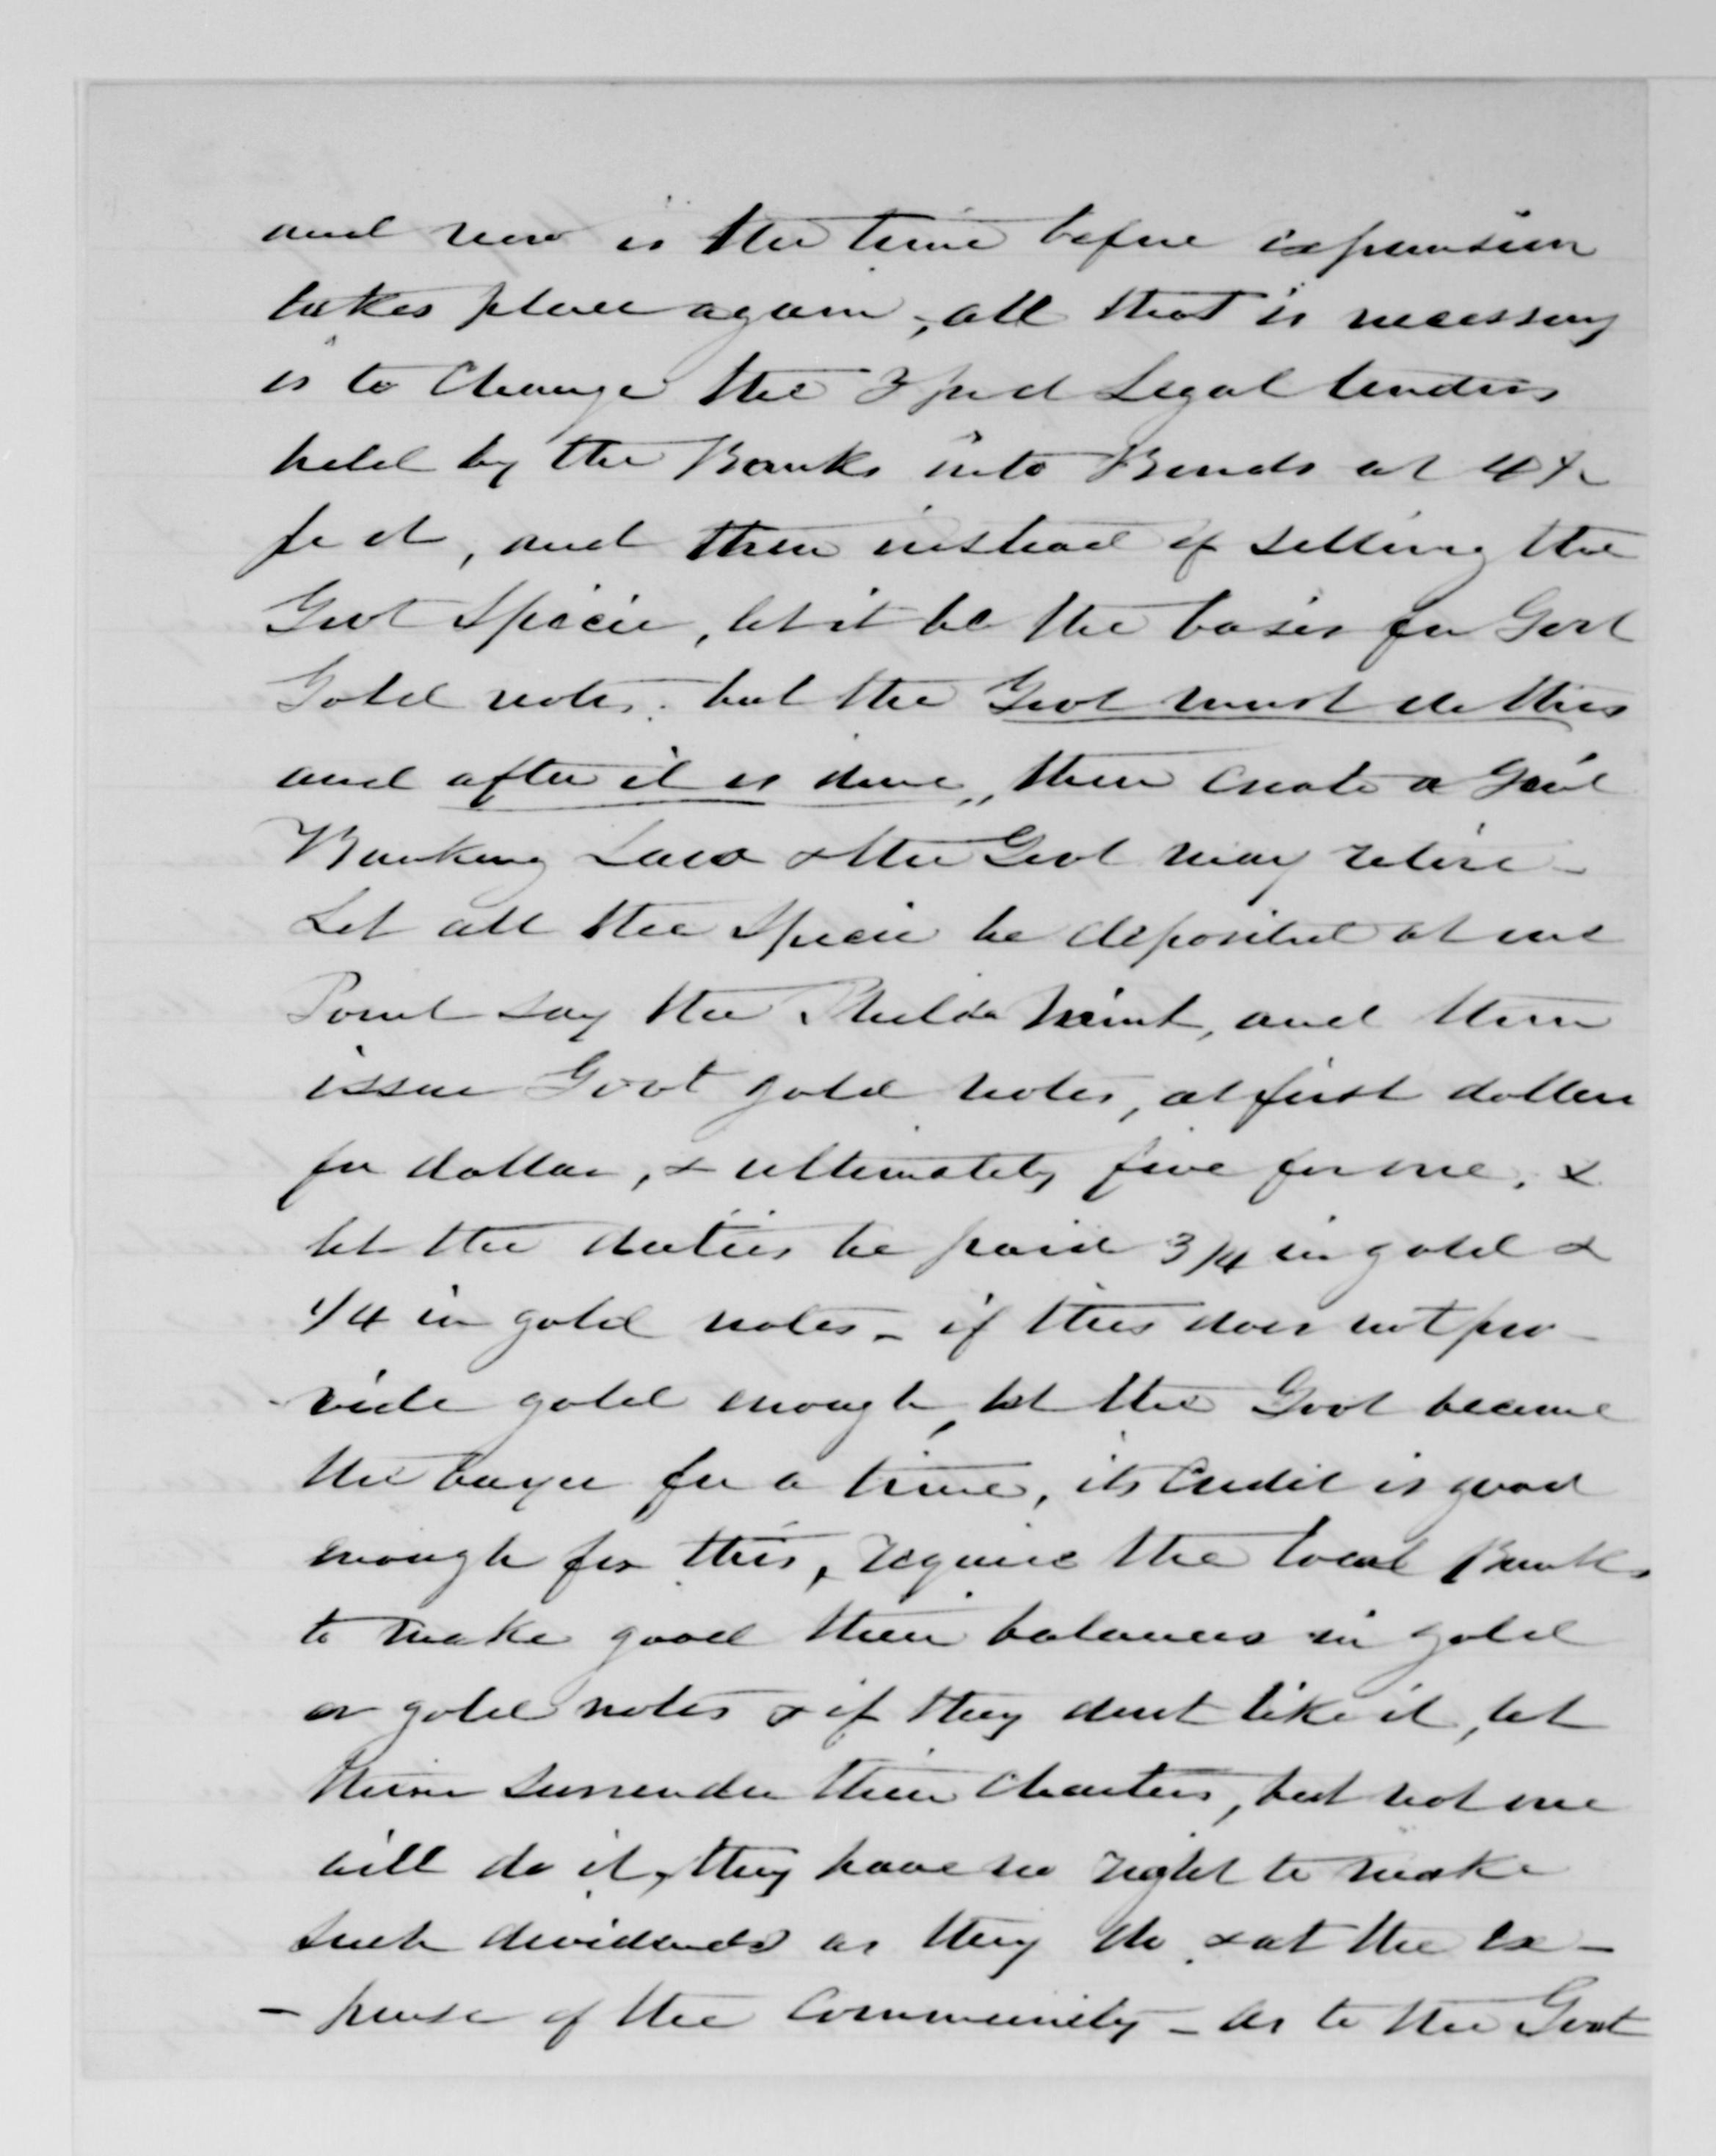 and now is the time before expansion
takes place again, all that is necessary
is to change the 3 p ct Legal tenders
held by the Banks into Bonds at 4 %
p ct, and then instead of selling the
Govt Specie, let it be the basis for Govt
Gold notes. but the Govt must do this
and after it is done, then create a Genl
Banking Law & the Govt may retire -
Let all the Specie be deposited at one
Point say the Philda Mint, and then
issue Govt gold notes, at first dollar
for dollar, & ultimately five for one, &
let the duties be paid 3/4 in gold &
1/4 in gold notes - if this does not pro-
vide gold enough, let the Govt become
the buyer for a time, its Credit is good
enough for this, require the local Banks
to make good their balances in gold
or gold notes & if they dont like it, let
them surrender their Charters, but not one
will do it, they have no right to make
such dividends as they do, & at the ex-
-pense of the Community - As to the Govt